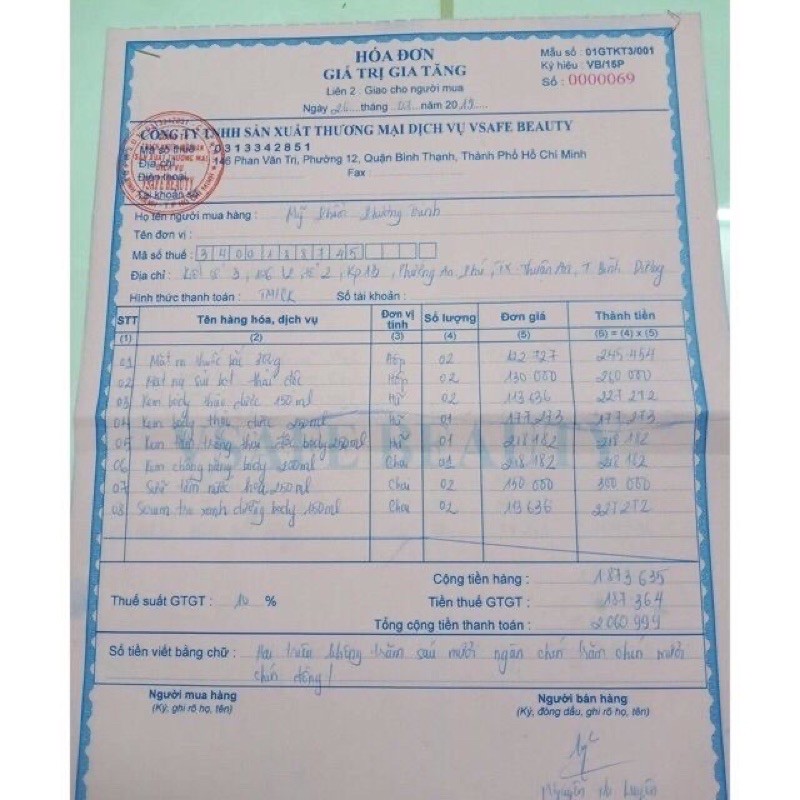 HÓA ĐƠN
GIÁ TRỊ GIA TĂNG
Liên 2 : Giao cho người mua
Ngày 26 tháng 07 năm 2019
Mẫu số : 01GTKT3/001
Ký hiệu : VB/15P
Số : 0000069
CÔNG TY TNHH SẢN XUẤT THƯƠNG MẠI DỊCH VỤ VSAFE BEAUTY
Mã số thuế : 0313342851
Địa chỉ : 146 Phan Văn Trị, Phường 12, Quận Bình Thạnh, Thành Phố Hồ Chí Minh
Điện thoại : Fax :
Tài khoản số :
Họ tên người mua hàng : Mỹ Phẩm Phương Oanh
Tên đơn vị :
Mã số thuế : 3400138745
Địa chỉ : 3, 2, Kp 1B, Phường An Phú, TX Thuận An, T. Bình Dương
Hình thức thanh toán : TM/CK Số tài khoản :
STT Tên hàng hóa, dịch vụ Đơn vị tính Số lượng Đơn giá Thành tiền
(1) (2) (3) (4) (5) (6) = (4) x (5)
01 Mặt nạ thuốc bắc Hộp 02 122.727 245.454
02 Mặt nạ sủi bọt thải độc Hộp 02 130.000 260.000
03 Kem body thảo dược 150ml Hũ 02 113.636 227.272
04 Kem body thảo dược 250ml Hũ 01 177.273 177.273
05 Kem trắng thải độc body 250ml Hũ 01 218.182 218.182
06 Kem chống nắng body 200ml Chai 01 218.182 218.182
07 Sữa tắm nước hoa 250ml Chai 02 150.000 300.000
08 Serum xanh dưỡng body 150ml Chai 02 113.636 227.272
VSAFE BEAUTY
Cộng tiền hàng : 1.873.635
Thuế suất GTGT : 10 % Tiền thuế GTGT : 187.364
Tổng cộng tiền thanh toán : 2.060.999
Số tiền viết bằng chữ : Hai triệu không trăm sáu mươi ngàn chín trăm chín mươi
chín đồng!
Người mua hàng
(Ký, ghi rõ họ, tên)
Người bán hàng
(Ký, đóng dấu, ghi rõ họ, tên)
Nguyễn